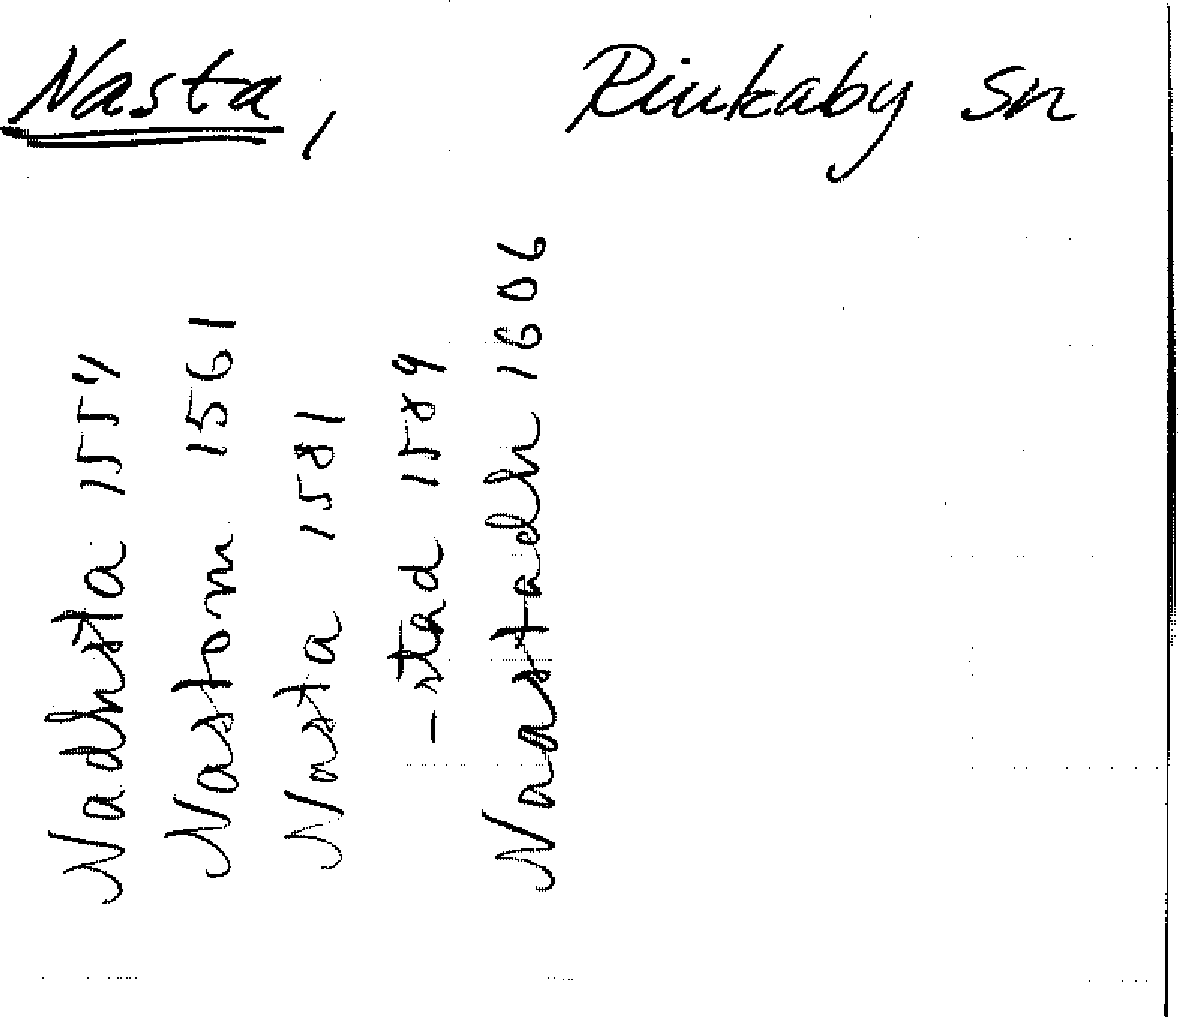 Nasta, Rinkaby sn
Nadhsta 1554
Nastom 1561
Nasta 1581
-stad 1589
Naastadh 1606